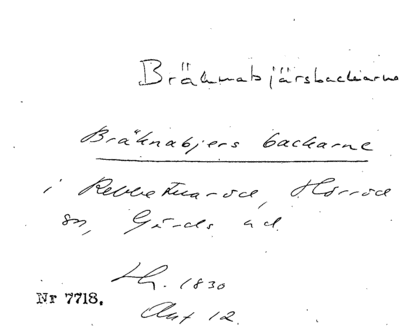 Bräknabjärsbackarne
Bräknabjers backarne
i Rebbetuaröd, Hörröd
sn, Gärds hd.
Lh. 1830
Nr 7718.
Ant 12.